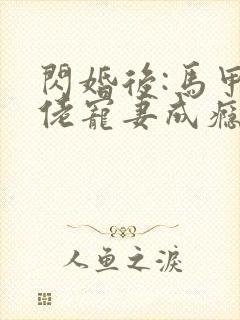 閃婚後:馬甲
佬寵妻成癮
人鱼之淚